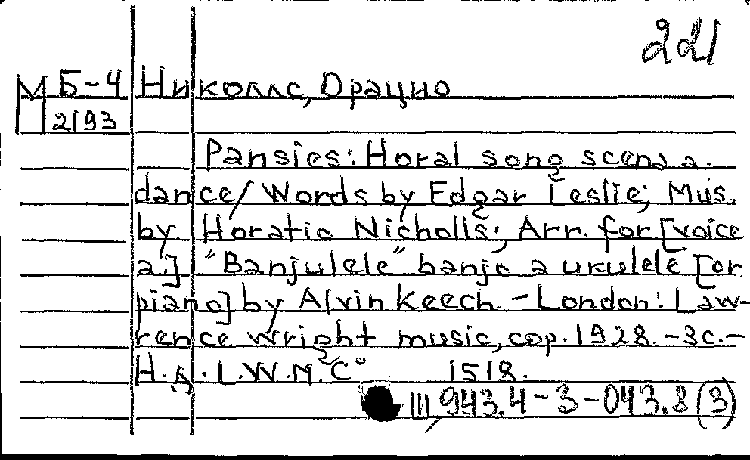 221
М Б-4 Николлс, Орацио
2193
Pansies: Horal song scena a.
dance/ Words by Edgar Leslie; Mus.
by Horatio Nicholls; Arr. for [voice
a.] "Banjulele" banjo a ukulele [or
piano] by Alvin Keech. - London: Law-
rence Wright music, cop. 1928. - 3c. -
Н.д. L.W.M.C° 1518.
III 943.4-3-043.8(3)